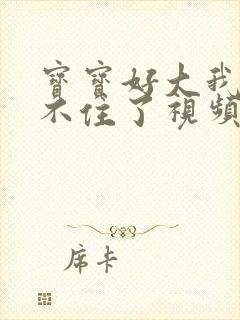 寶寶好大我
不住了視頻
席卡